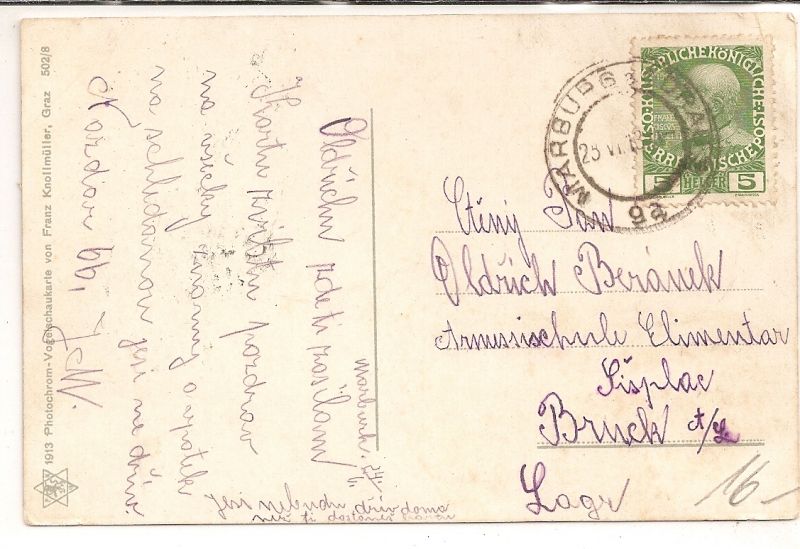 1913 Photochrom-Vogelschaukarte von Franz Knollmüller, Graz 502/8
Oldřichu zdeti zasilam
Kartu zvibtu pozdrav
na všicky znamy a zpatek
na schledanou jesi ne dřiv
Nazdar
jesi nebudu dřiv doma
než ti dostaneš
marburk
MARBURG
9a
KAISERLICHE KÖNIGLICHE
ÖSTERREICHISCHE POST
5 HELLER 5
Ctěný Pan
Oldřich Beránek
Armessischule Elimentar
Šišplac
Bruck a/L
Lagr
16-